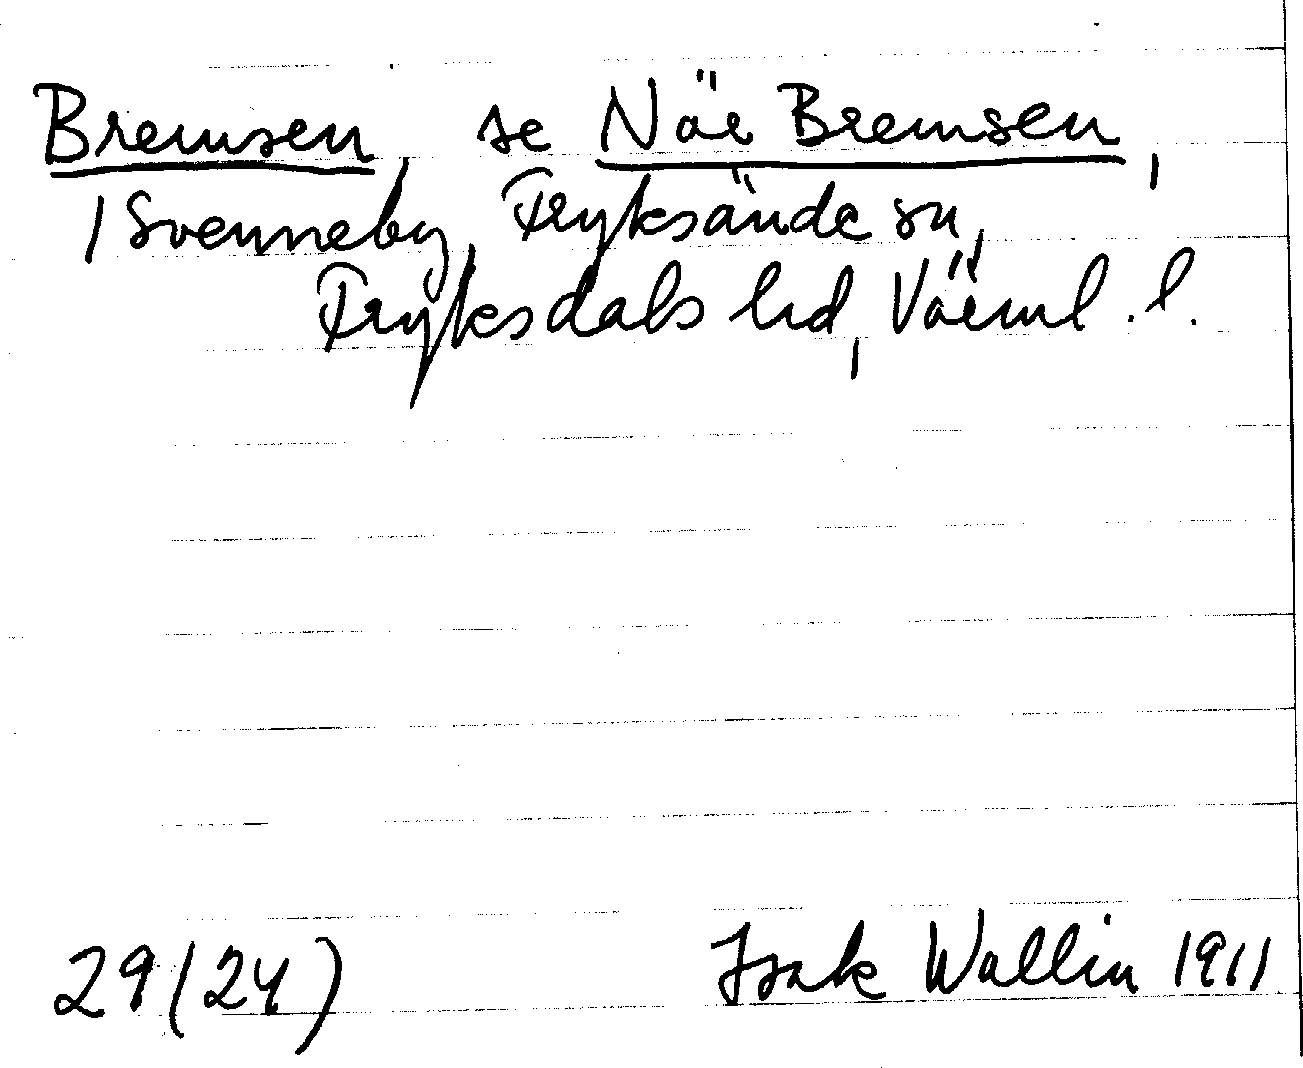 Bremsen, se När Bremsen,
/ Svenneby, Fryksände sn,
Fryksdals hd, Värml. l.
29 (24) Isak Wallin 1911